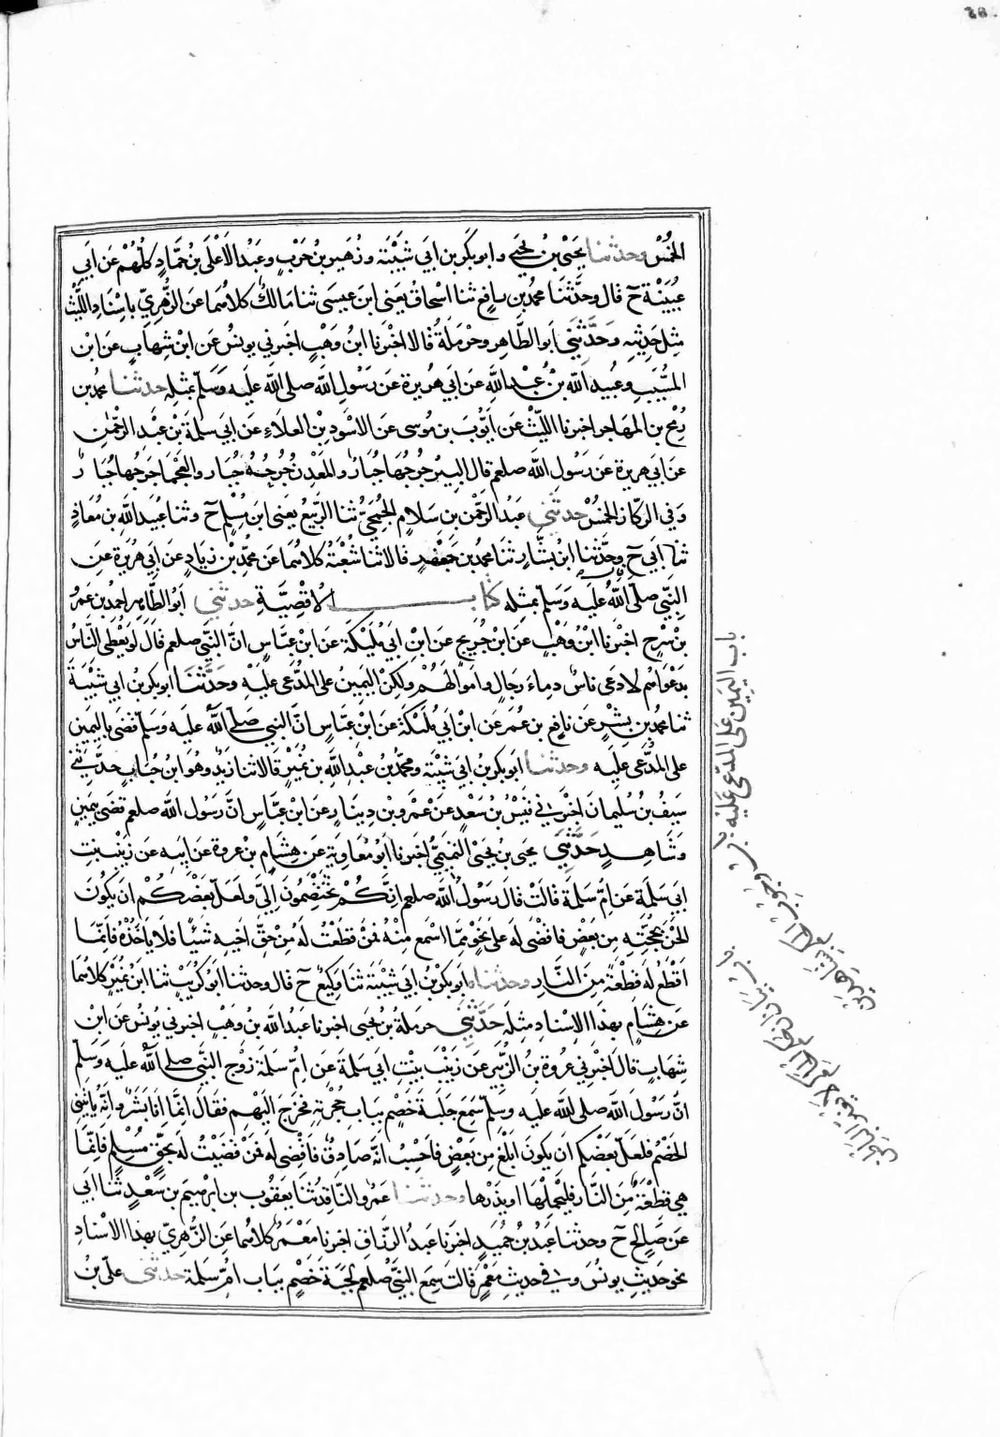 الخمس وحدثنا يحيى بن يحيى وابو بكر بن ابي شيبة وزهير بن حرب وعبد الاعلى بن حماد كلهم عن ابي
عيينة ح قال وحدثنا محمد بن رافع ثنا اسحاق يعني ابن عيسى ثنا مالك كلاهما عن الزهري باسناد الليث
مثل حديثه وحدثني ابو الطاهر وحرملة قالا اخبرنا ابن وهب اخبرني يونس عن ابن شهاب عن ابن
المسيب وعبيد الله بن عبد الله عن ابي هريرة عن رسول الله صلى الله عليه وسلم بمثله حدثنا محمد بن
رمح بن المهاجر اخبرنا الليث عن ايوب بن موسى عن الاسود بن العلاء عن ابي سلمة بن عبد الرحمن
عن ابي هريرة عن رسول الله صلعم قال البير جرحها جبار والمعدن جرحه جبار والعجما جرحها جبار
وفي الركاز الخمس حدثني عبد الرحمن بن سلام الجمحي ثنا الربيع يعني ابن مسلم ح وثنا عبيد الله بن معاذ
ثنا ابي ح وحدثنا ابن بشار ثنا محمد بن جعفر قالا ثنا شعبة كلاهما عن محمد بن زياد عن ابي هريرة عن
النبي صلى الله عليه وسلم بمثله كتاب الاقضية حدثني ابو الطاهر احمد بن عمرو
بن سرح اخبرنا ابن وهب عن ابن جريج عن ابن ابي مليكة عن ابن عباس ان النبي صلعم قال لو يعطى الناس
بدعواهم لادعى ناس دماء رجال واموالهم ولكن اليمين على المدعى عليه وحدثنا ابو بكر بن ابي شيبة
ثنا محمد بن بشر عن نافع بن عمر عن ابن ابي مليكة عن ابن عباس ان النبي صلى الله عليه وسلم قضى باليمين
على المدعى عليه وحدثنا ابو بكر بن ابي شيبة ومحمد بن عبد الله بن نمير قالا ثنا زيد وهو ابن حباب حدثني
سيف بن سليمان اخبرني قيس بن سعد عن عمرو بن دينار عن ابن عباس ان رسول الله صلعم قضى بيمين
وشاهد حدثني يحيى بن يحيى التميمي اخبرنا ابو معاوية عن هشام بن عروة عن ابيه عن زينب بنت
ابي سلمة عن ام سلمة قالت قال رسول الله صلعم انكم تختصمون الي ولعل بعضكم ان يكون
الحن بحجته من بعض فاقضى له على نحو مما اسمع منه فمن قطعت له من حق اخيه شيئا فلا ياخذه فانما
اقطع له قطعة من النار وحدثناه ابو بكر بن ابي شيبة ثنا وكيع ح قال وحدثنا ابو كريب ثنا ابن نمير كلاهما
عن هشام بهذا الاسناد مثله حدثني حرملة بن يحيى اخبرنا عبد الله بن وهب اخبرني يونس عن ابن
شهاب قال اخبرني عروة بن الزبير عن زينب بنت ابي سلمة عن ام سلمة زوج النبي صلى الله عليه وسلم
ان رسول الله صلى الله عليه وسلم سمع جلبة خصم بباب حجرته فخرج اليهم فقال انما انا بشر وانه ياتيني
الخصم فلعل بعضكم ان يكون ابلغ من بعض فاحسب انه صادق فاقضى له فمن قضيت له بحق مسلم فانما
هي قطعة من النار فليحملها او يذرها وحدثنا عمرو الناقد ثنا يعقوب بن ابرهيم بن سعد ثنا ابي
عن صالح ح وحدثنا عبد بن حميد اخبرنا عبد الرزاق اخبرنا معمر كلاهما عن الزهري بهذا الاسناد
نحو حديث يونس وفي حديث معمر قالت سمع النبي صلعم لجبة خصم بباب ام سلمة حدثني علي بن
باب اليمين على المدعى عليه